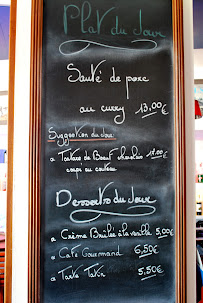 Plat du Jour
Sauté de porc
au curry 13,00€
Suggestion du Jour
Tartare de Bœuf charolais
coupé au couteau
Desserts du Jour
Crème Brulée à la vanille 5,00€
Café Gourmand 6,50€
Tarte Tatin 5,50€